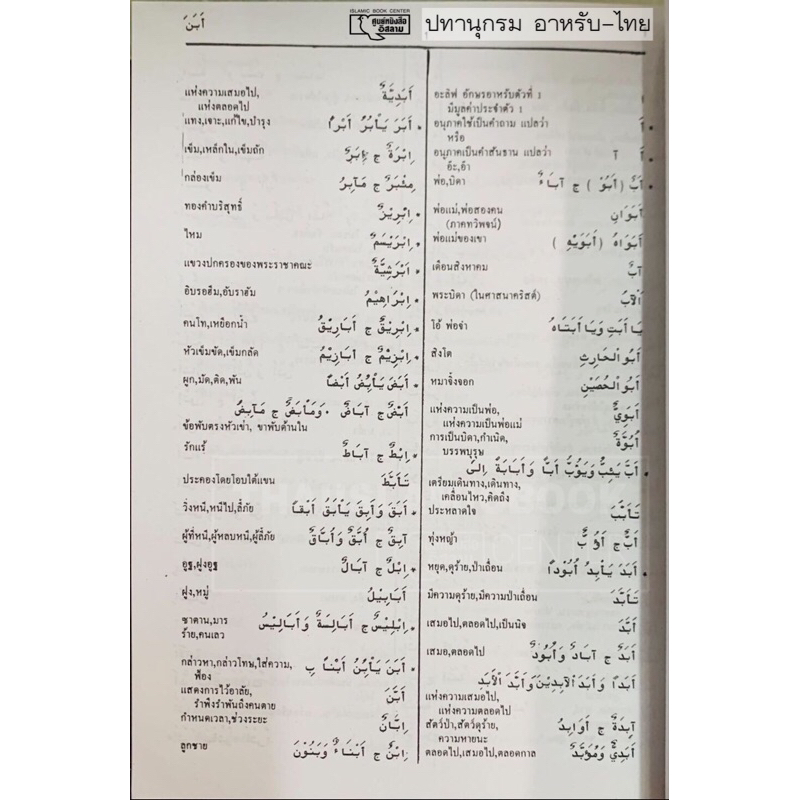 ISLAMIC BOOK CENTER
ศูนย์หนังสือ
อิสลาม
ปทานุกรม อาหรับ–ไทย
أَبَنَ
อะลิฟ อักษรอาหรับตัวที่ 1
มีมูลค่าประจำตัว 1
أَ
อนุภาคใช้เป็นคำถาม แปลว่า
หรือ
أَ آ
อนุภาคเป็นคำสันธาน แปลว่า
อ๊ะ,อ้า
أَبٌ (أَبَوْ) ج آبَاءٌ
พ่อ,บิดา
أَبَوَانِ
พ่อแม่,พ่อสองคน
(ภาคทวิพจน์)
أَبَوَاهُ (أَبَوَيْهِ)
พ่อแม่ของเขา
آبُ
เดือนสิงหาคม
اَلْأَبُ
พระบิดา (ในศาสนาคริสต์)
يَا أَبَتِ وَيَا أَبَتَاهُ
โอ้ พ่อจ๋า
أَبُو الْحَارِثِ
สิงโต
أَبُو الْحُصَيْنِ
หมาจิ้งจอก
أَبَوِيٌّ
แห่งความเป็นพ่อ,
แห่งความเป็นพ่อแม่
أُبُوَّةٌ
การเป็นบิดา,กำเนิด,
บรรพบุรุษ
أَبَّ يَئِبُّ وَيَؤُبُّ أَبًّا وَأَبَابَةً إِلَى
เตรียมเดินทาง,เดินทาง,
เคลื่อนไหว,คิดถึง
تَأَبَّبَ
ประหลาดใจ
أَبٌّ ج أَؤُبٌّ
ทุ่งหญ้า
• أَبَدَ يَأْبِدُ أُبُودًا
หยุด,ดุร้าย,ป่าเถื่อน
تَأَبَّدَ
มีความดุร้าย,มีความป่าเถื่อน
أَبَّدَ
เสมอไป,ตลอดไป,เป็นนิจ
أَبَدٌ ج آبَادٌ وَأُبُودٌ
เสมอ,ตลอดไป
أَبَدًا وَأَبَدَ الْآبِدِيْنَ وَأَبَدَ الْأَبَدِ
แห่งความเสมอไป,
แห่งความตลอดไป
آبِدَةٌ ج أَوَابِدُ
สัตว์ป่า,สัตว์ดุร้าย,
ความหายนะ
أَبَدِيٌّ وَمُؤَبَّدٌ
ตลอดไป,เสมอไป,ตลอดกาล
أَبَدِيَّةٌ
แห่งความเสมอไป,
แห่งตลอดไป
• أَبَرَ يَأْبُرُ أَبْرًا
แทง,เจาะ,แก้ไข,บำรุง
إِبْرَةٌ ج إِبَرٌ
เข็ม,เหล็กใน,เข็มถัก
مِئْبَرٌ ج مَآبِرُ
กล่องเข็ม
• إِبْرِيْزٌ
ทองคำบริสุทธิ์
• إِبْرَيْسَمٌ
ไหม
• أَبْرَشِيَّةٌ
แขวงปกครองของพระราชาคณะ
• إِبْرَاهِيْمُ
อิบรอฮีม,อับราฮัม
• إِبْرِيْقٌ ج أَبَارِيْقُ
คนโท,เหยือกน้ำ
• إِبْزِيْمٌ ج أَبَازِيْمُ
หัวเข็มขัด,เข็มกลัด
• أَبَضَ يَأْبِضُ أَبْضًا
ผูก,มัด,ติด,พัน
أَبْضٌ ج آبَاضٌ . وَمَأْبِضٌ ج مَآبِضُ
ข้อพับตรงหัวเข่า, ขาพับด้านใน
• إِبْطٌ ج آبَاطٌ
รักแร้
تَأَبَّطَ
ประคองโดยโอบใต้แขน
• أَبَقَ وَأَبِقَ يَأْبَقُ أَبْقًا
วิ่งหนี,หนีไป,ลี้ภัย
آبِقٌ ج أُبَّقٌ وَأُبَّاقٌ
ผู้ที่หนี,ผู้หลบหนี,ผู้ลี้ภัย
• إِبِلٌ ج آبَالٌ
อูฐ,ฝูงอูฐ
أَبَابِيْلُ
ฝูง,หมู่
• إِبْلِيْسُ ج أَبَالِسَةٌ وَأَبَالِيْسُ
ซาตาน,มาร
ร้าย,คนเลว
• أَبَنَ يَأْبِنُ أَبْنًا بِ
กล่าวหา,กล่าวโทษ,ใส่ความ,
ฟ้อง
أَبَّنَ
แสดงการไว้อาลัย,
รำพึงรำพันถึงคนตาย
إِبَّانٌ
กำหนดเวลา,ช่วงระยะ
• إِبْنٌ ج أَبْنَاءٌ وَبَنُوْنَ
ลูกชาย